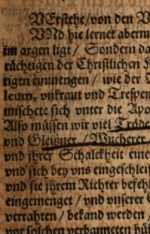 Verstehe / von den V
Vnd hie lernet aberm
im argen ligt / Sondern da
rächtigen der Christlichen K
tigen einmengen / wie der
lemen, vnkraut vnd Trespen
mischete sich vnter die Apo
Also müssen wir viel Träde
vnd Gleißner / Wucherer
vnd jhrer Schalckheit eine
vnd sich bey vns eingeschlei
vnd sie jhrem Richter befehl
eingemenget / vnd vnserer
verrahten / bekand werden /
vor solchen verbannten hüt